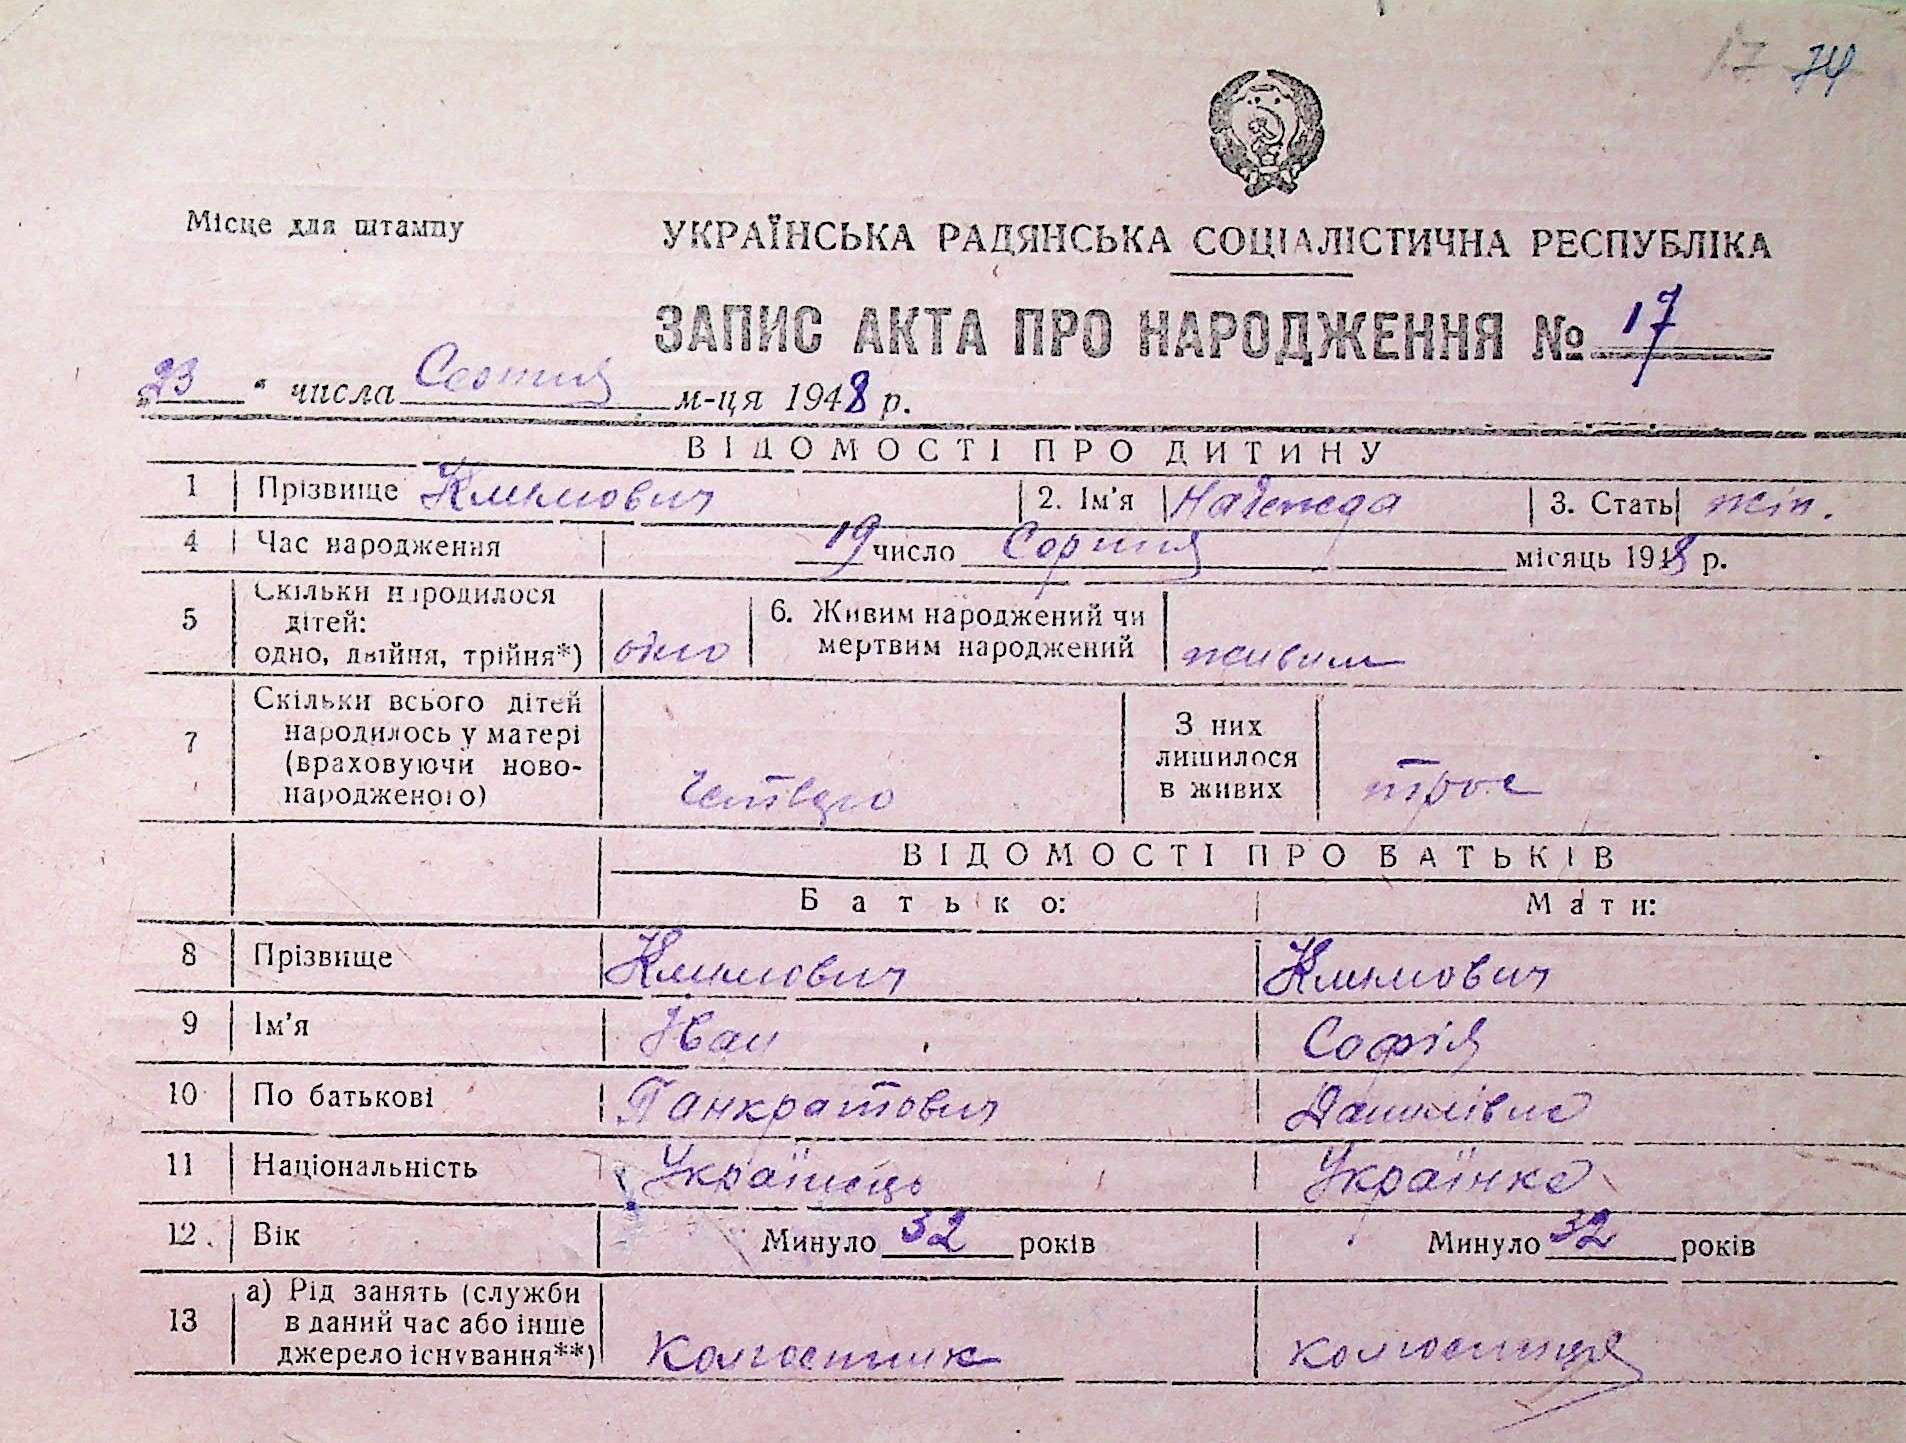 17 74
Місце для штампу
УКРАЇНСЬКА РАДЯНСЬКА СОЦІАЛІСТИЧНА РЕСПУБЛІКА
ЗАПИС АКТА ПРО НАРОДЖЕННЯ № 17
„23“ числа м-ця 1948 р.
ВІДОМОСТІ ПРО ДИТИНУ
1 Прізвище Климович 2. Ім'я Надежда 3. Стать жін.
4 Час народження 19 число Серпня місяць 1948 р.
5 Скільки народилося
дітей:
одно, двійня, трійня*) одно
6. Живим народжений чи
мертвим народжений живим
7 Скільки всього дітей
народилось у матері
(враховуючи ново-
народженого) Четверо
З них
лишилося
в живих трое
ВІДОМОСТІ ПРО БАТЬКІВ
Батько: Мати:
8 Прізвище Климович Климович
9 Ім'я Іван Софія
10 По батькові Панкратович Данилівна
11 Національність Українець Українка
12. Вік Минуло 32 років Минуло 32 років
13 а) Рід занять (служби
в даний час або інше
джерело існування**) Колгоспник колгоспниця